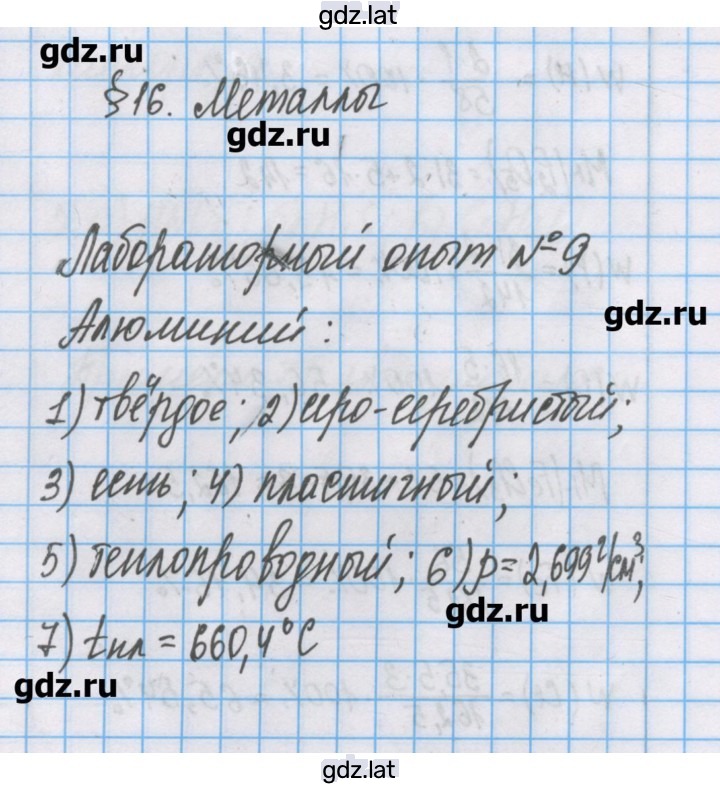 gdz.lat
gdz.ru
§16. Металлы
gdz.ru
Лабораторный опыт №9
Алюминий:
gdz.ru
1) твёрдое; 2) серо-серебристый;
3) есть; 4) пластичный;
5) теплопроводный; 6) ρ=2,699 г/см³;
gdz.ru
7) tпл = 660,4°C
gdz.ru
gdz.lat